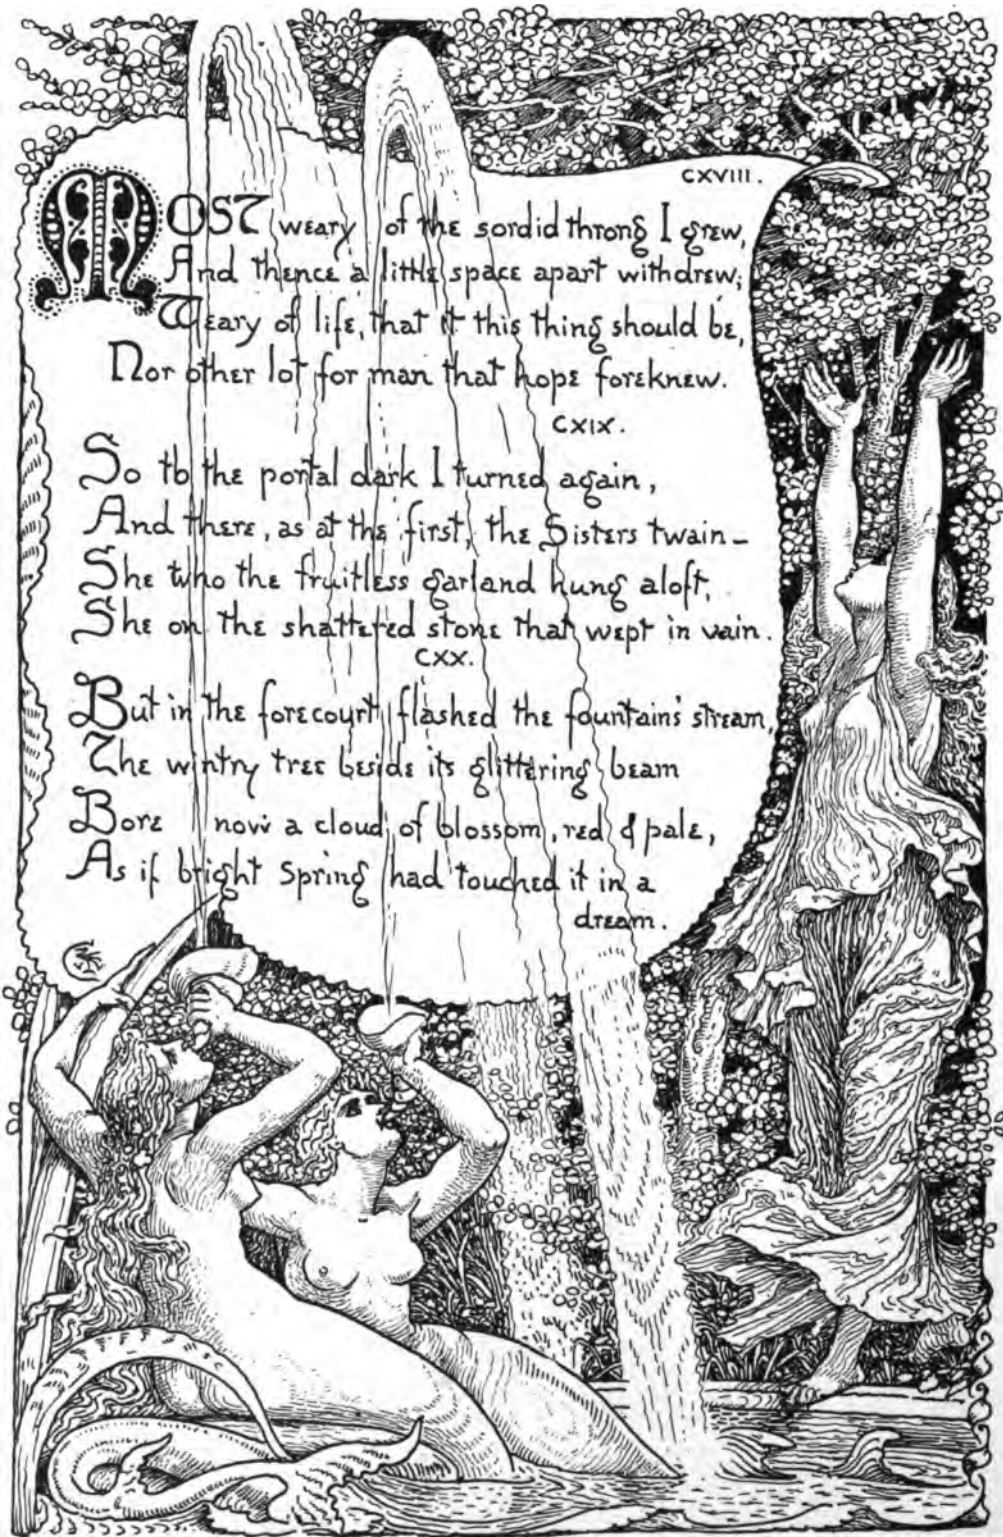 CXVIII.
MOST weary of the sordid throng I grew,
And thence a little space apart withdrew;
Weary of life, that it this thing should be,
Nor other lot for man that hope foreknew.
CXIX.
So to the portal dark I turned again,
And there, as at the first, the Sisters twain—
She who the fruitless garland hung aloft,
She on the shattered stone that wept in vain.
CXX.
But in the forecourt flashed the fountain's stream,
The wintry tree beside its glittering beam
Bore now a cloud of blossom, red & pale,
As if bright Spring had touched it in a
dream.